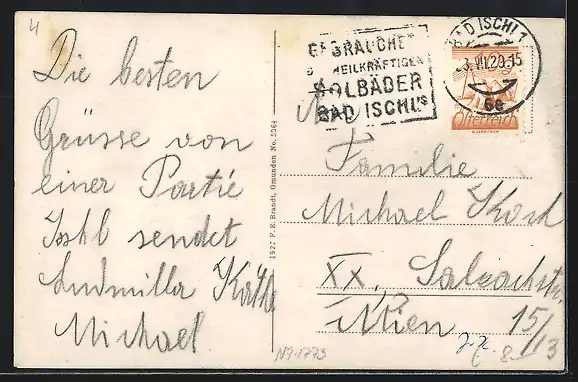 4
Die besten
Grüsse von
einer Partie
Ischl sendet
Ludmilla Käthe
Michael
1927 F. E. Brandt, Gmunden No. 5064
GEBRAUCHET
HEILKRÄFTIGEN
SOLBÄDER
BAD ISCHL'S
BAD ISCHL 1
3.VII.29.15
6a
Österreich
An
Familie
Michael Koch
XX. Salzachstr.
Wien 15/13
N91773